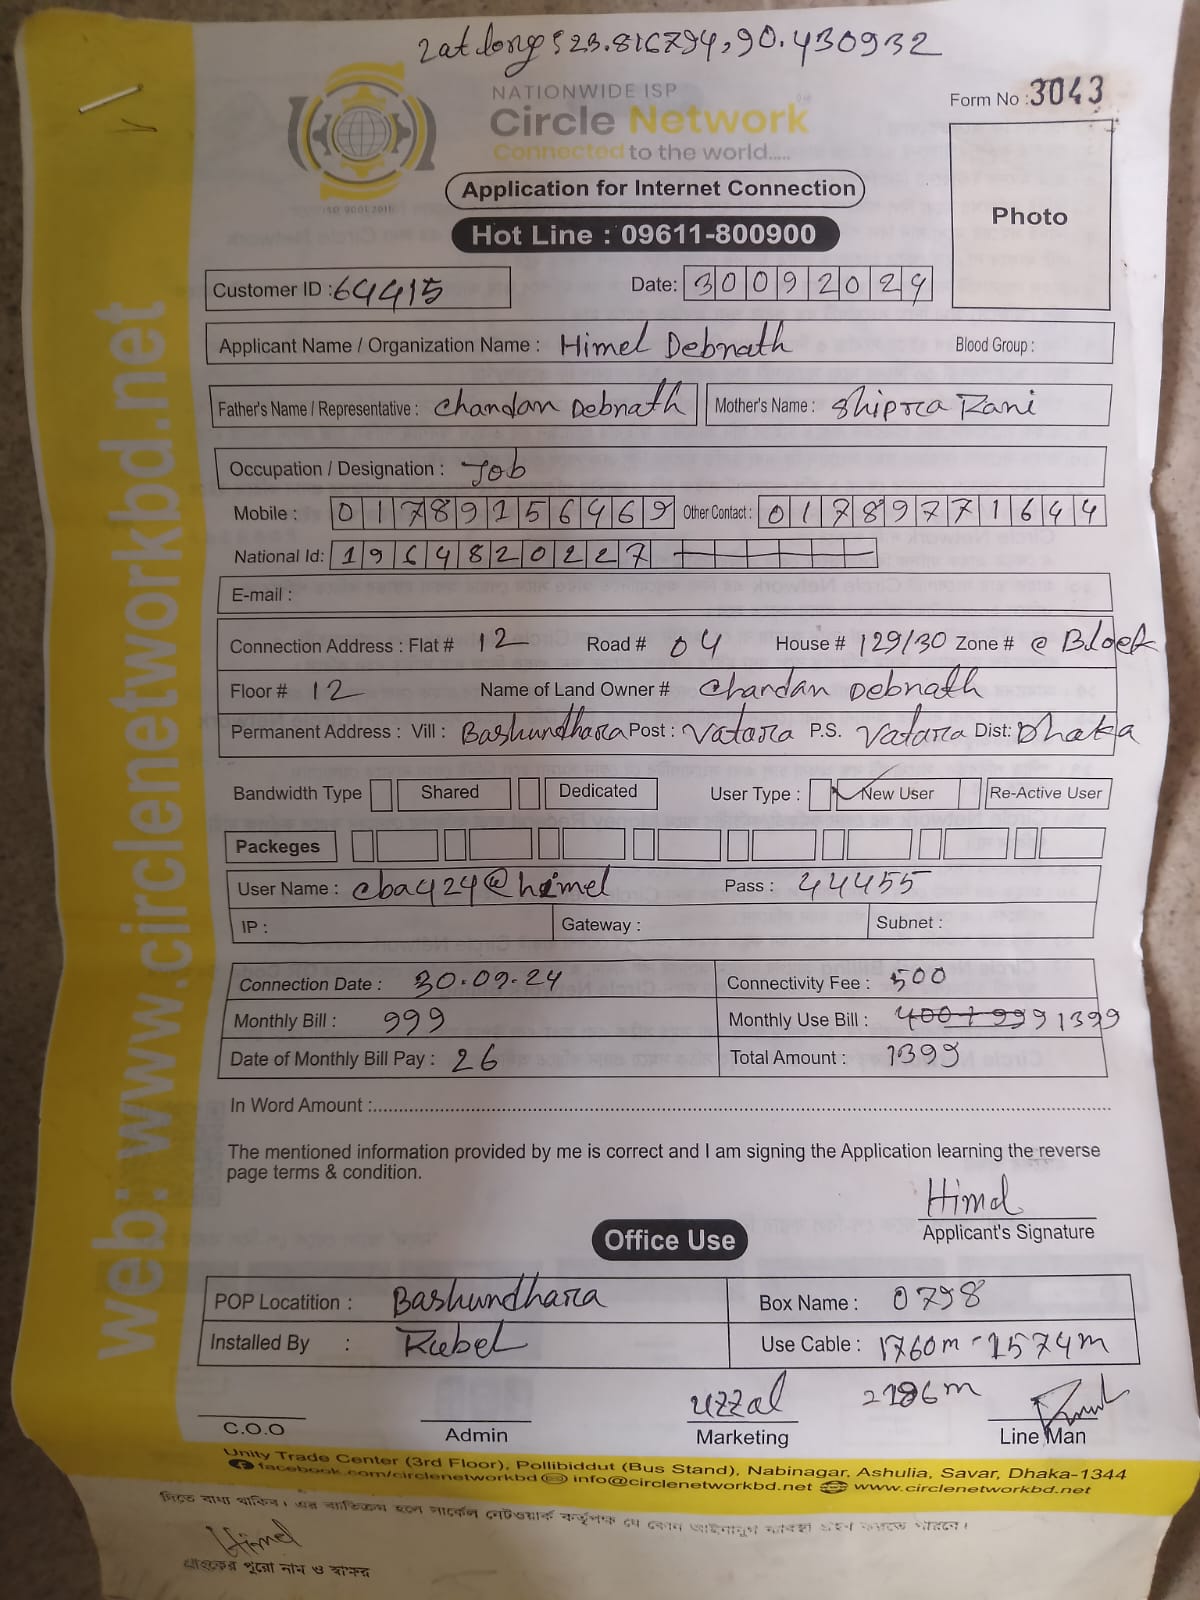 Lat long: 23.816794, 90.430932
NATIONWIDE ISP
Circle Network
Connected to the world.....
ISO 9001:2015
Form No : 3043
Photo
Application for Internet Connection
Hot Line : 09611-800900
Customer ID : 64415 Date: 30092024
Applicant Name / Organization Name : Himel Debnath Blood Group :
Father's Name / Representative : Chandan Debnath Mother's Name : Shipra Rani
Occupation / Designation : Job
Mobile : 01789156469 Other Contact : 01789771644
National Id: 1964820227
E-mail :
Connection Address : Flat # 12 Road # 04 House # 129/30 Zone # @ Block
Floor # 12 Name of Land Owner # Chandan Debnath
Permanent Address : Vill : Bashundhara Post : Vatara P.S. Vatara Dist: Dhaka
Bandwidth Type Shared Dedicated User Type : New User Re-Active User
Packeges
User Name : cba424@himel Pass : 44455
IP : Gateway : Subnet :
Connection Date : 30.09.24 Connectivity Fee : 500
Monthly Bill : 999 Monthly Use Bill : 400+999 1399
Date of Monthly Bill Pay : 26 Total Amount : 1399
In Word Amount :
The mentioned information provided by me is correct and I am signing the Application learning the reverse
page terms & condition.
Himel
Applicant's Signature
Office Use
POP Locatition : Bashundhara Box Name : 0798
Installed By : Rubel Use Cable : 1760m - 1574m
Uzzal 2186m
C.O.O Admin Marketing Line Man
Unity Trade Center (3rd Floor), Pollibiddut (Bus Stand), Nabinagar, Ashulia, Savar, Dhaka-1344
facebook.com/circlenetworkbd info@circlenetworkbd.net www.circlenetworkbd.net
দিতে বাধ্য থাকিব। এর ব্যতিক্রম হলে সার্কেল নেটওয়ার্ক কর্তৃপক্ষ যে কোন আইনানুগ ব্যবস্থা গ্রহণ করতে পারবে।
Himel
গ্রাহকের পুরো নাম ও স্বাক্ষর
web: www.circlenetworkbd.net